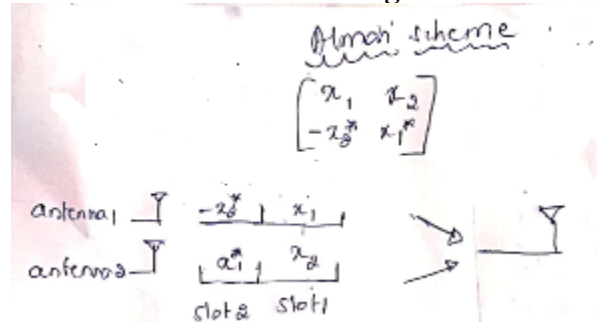 Almati scheme
x₁ x₂
-x₂* x₁*
antenna1 -x₂* x₁
antenna2 x₁* x₂
slot2 slot1